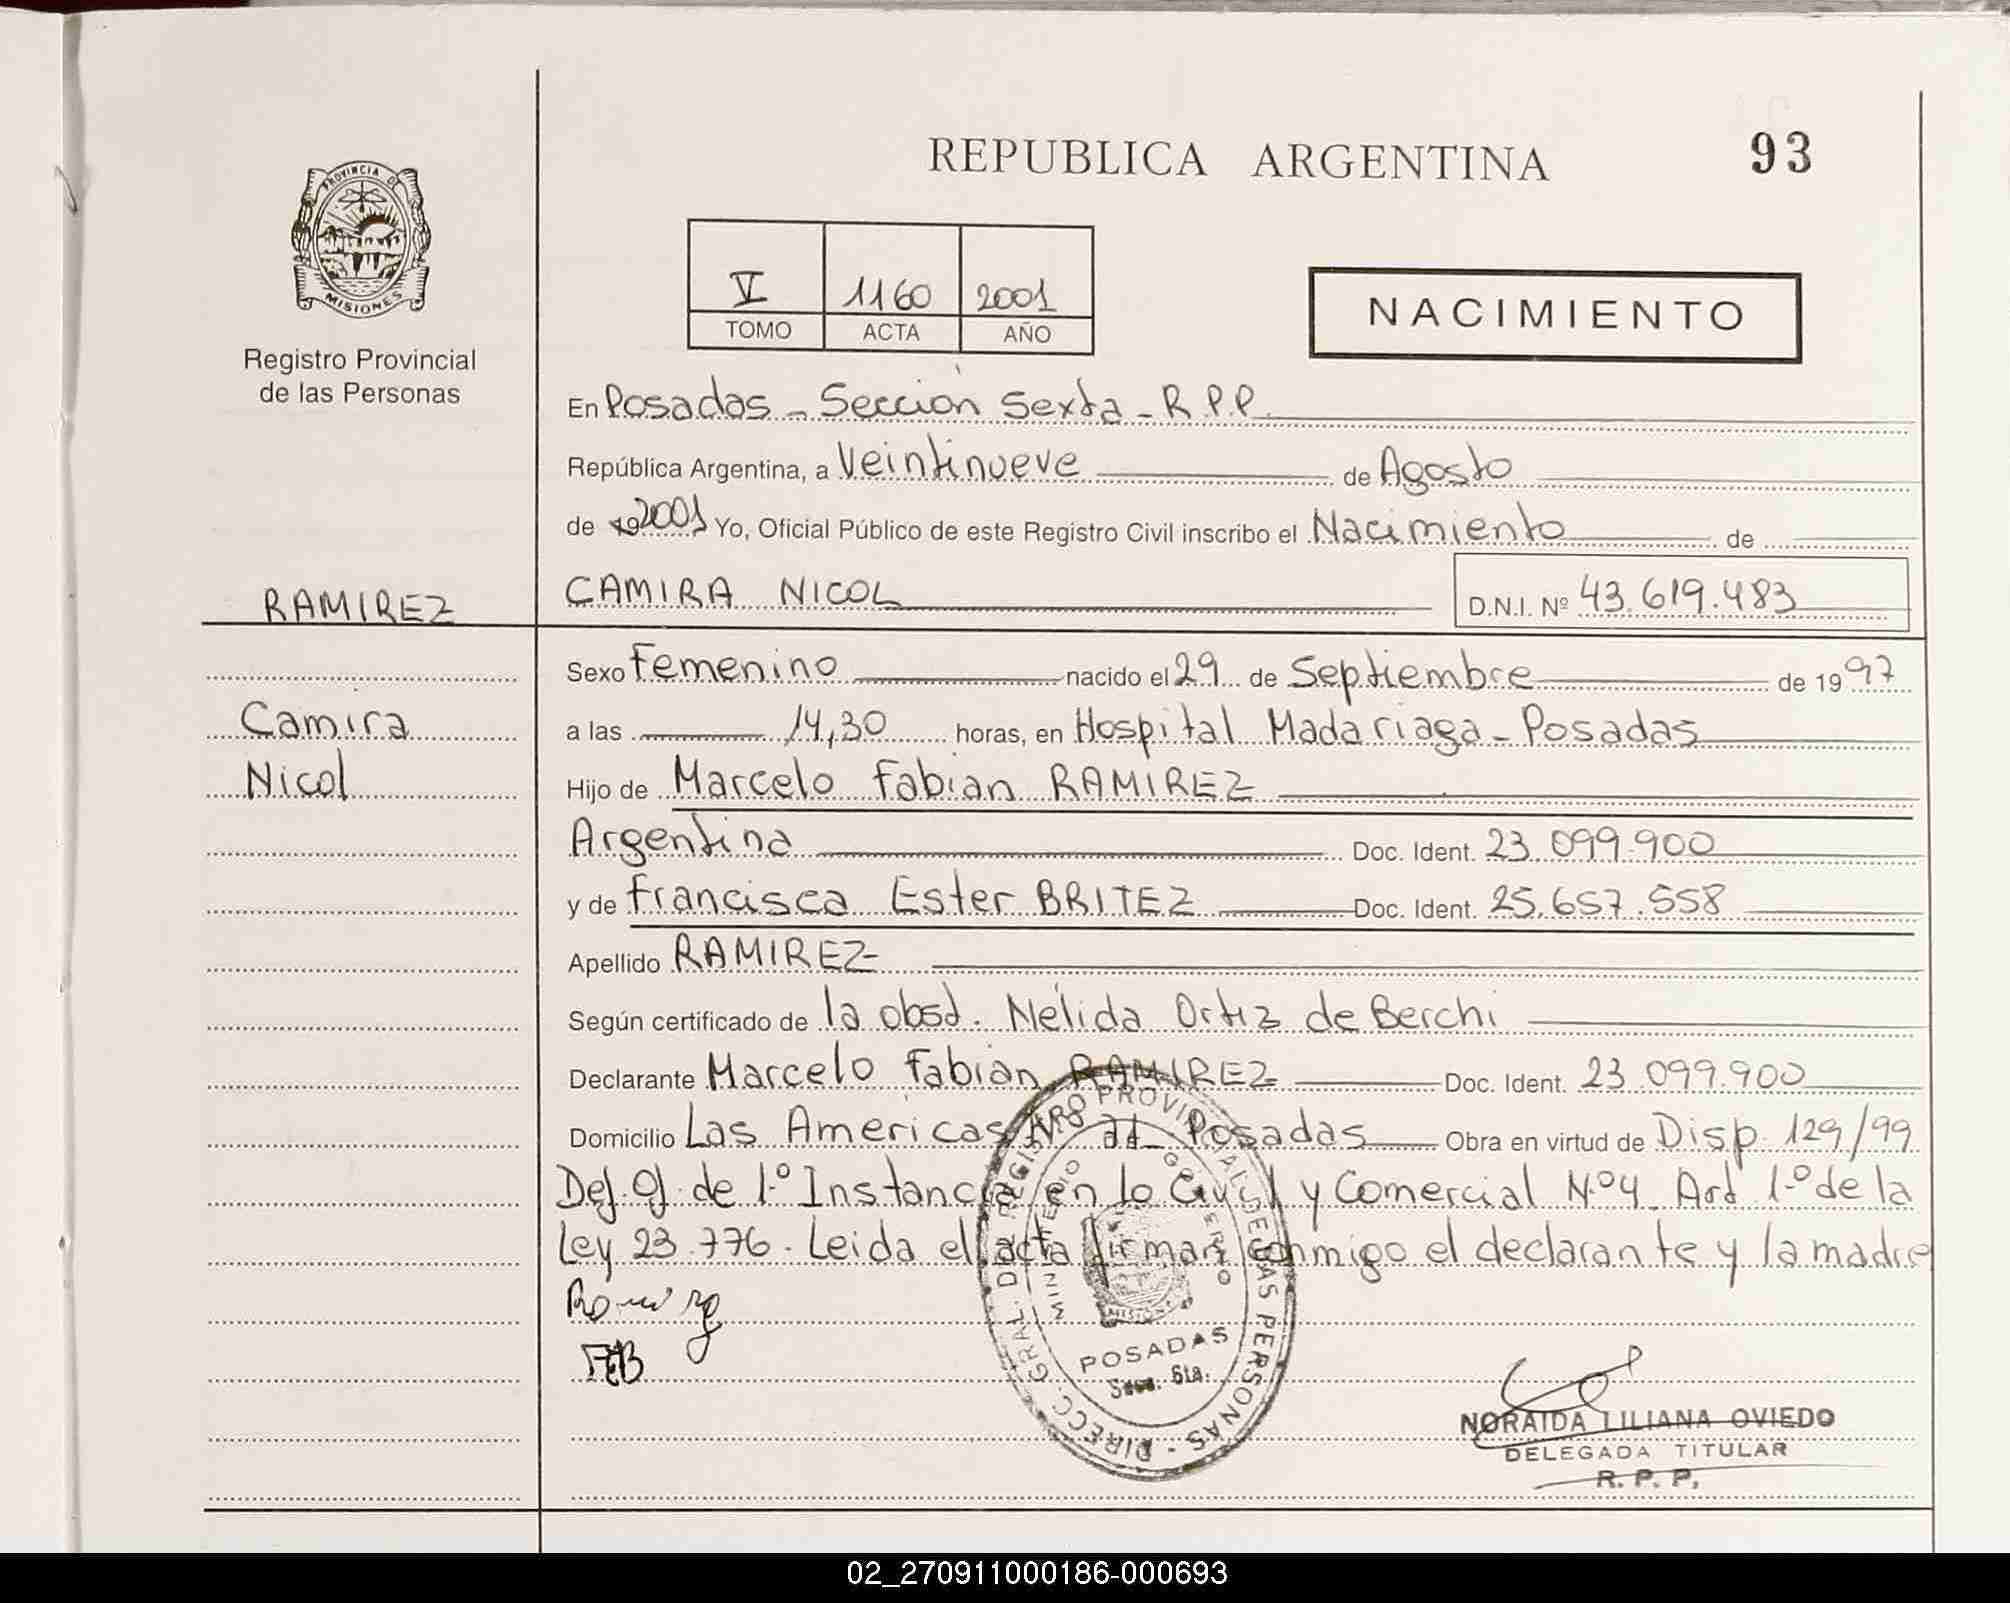 REPUBLICA ARGENTINA
93
PROVINCIA DE
MISIONES
Registro Provincial
de las Personas
V 1160 2001
TOMO ACTA AÑO
NACIMIENTO
En Posadas - Sección Sexta - R.P.P.
República Argentina, a Veintinueve de Agosto
de 19 2001 Yo, Oficial Público de este Registro Civil inscribo el Nacimiento de
RAMIREZ
CAMIRA NICOL D.N.I. Nº 43.619.483
Sexo Femenino nacido el 29 de Septiembre de 1997
Camira
a las 14,30 horas, en Hospital Madariaga - Posadas
Nicol
Hijo de Marcelo Fabian RAMIREZ
Argentina Doc. Ident. 23.099.900
y de Francisca Ester BRITEZ Doc. Ident. 25.657.558
Apellido RAMIREZ
Según certificado de la obst. Nélida Ortiz de Berchi
Declarante Marcelo Fabian RAMIREZ Doc. Ident. 23.099.900
Domicilio Las Americas Posadas Obra en virtud de Disp. 129/99
Def. Of. de 1.º Instancia en lo Civil y Comercial N.º 4. Art 1.º de la
Ley 23.776. Leida el acta firman conmigo el declarante y la madre
Ramirez
FEB
DIRECC. GRAL. DE REGISTRO PROVINCIAL DE LAS PERSONAS
MINISTERIO GOBIERNO
MISIONES
POSADAS
Secc. 6ta.
NORAIDA LILIANA OVIEDO
DELEGADA TITULAR
R. P. P.
02_270911000186-000693